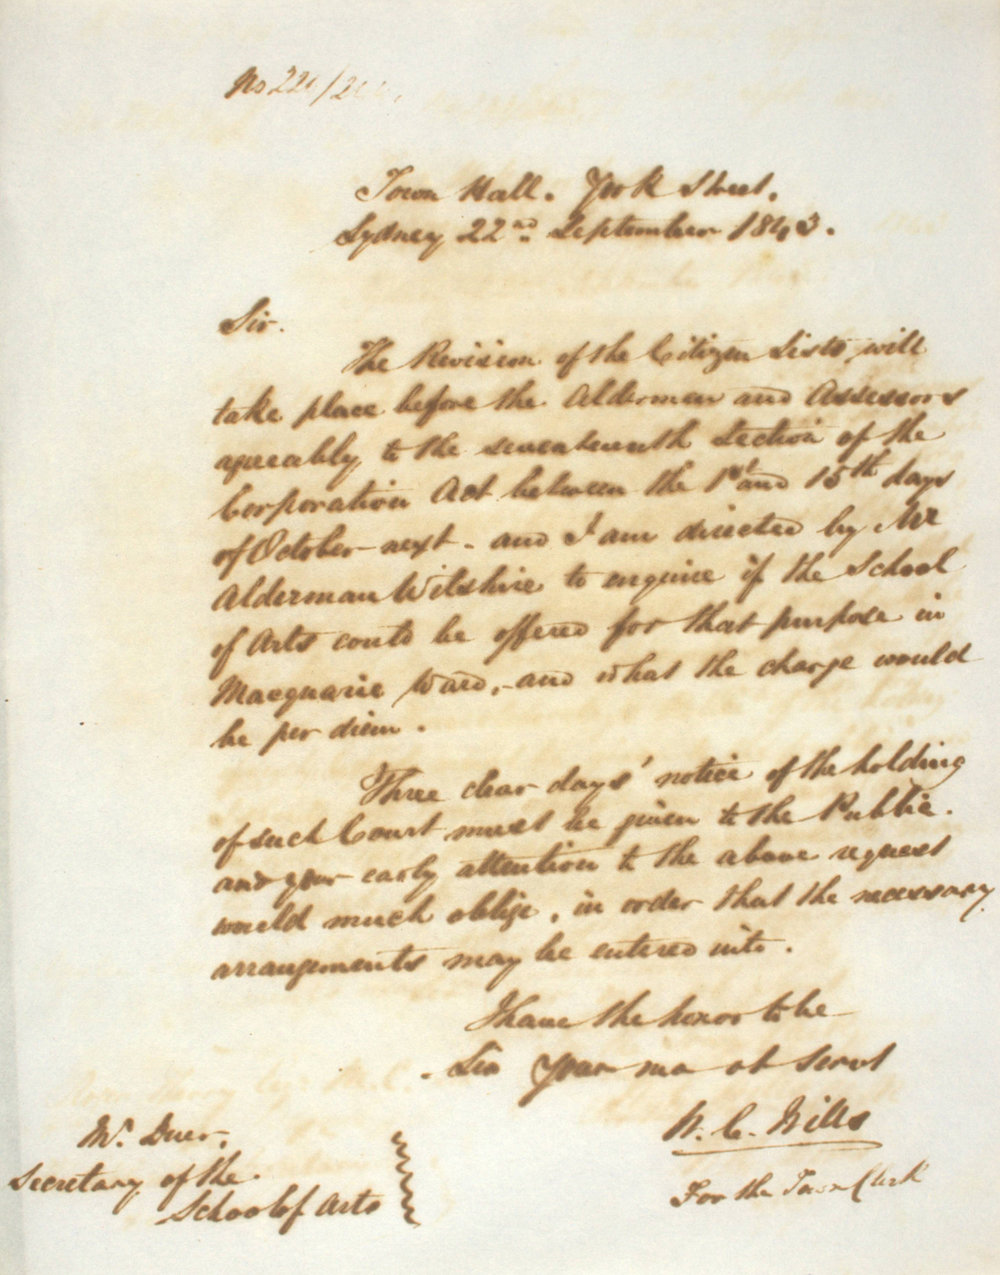 Town Hall. York Street.
Sydney 22nd. September 1843.
Sir.
The Revision of the Citizen Lists will
take place before the Alderman and Assessors
agreeably to the seventeenth Section of the
Corporation Act between the 1st and 15th days
of October next. and I am directed by Mr
Alderman Wilshire to enquire if the School
of Arts could be offered for that purpose in
Macquarie Ward, and what the charge would
be per diem.
Three clear days' notice of the holding
of such Court must be given to the Public.
and your early attention to the above request
would much oblige, in order that the necessary
arrangements may be entered into.
I have the honor to be
Sir Your mo ob Servt
W. C. Wills
For the Town Clerk
Mr. Duer.
Secretary of the
School of Arts